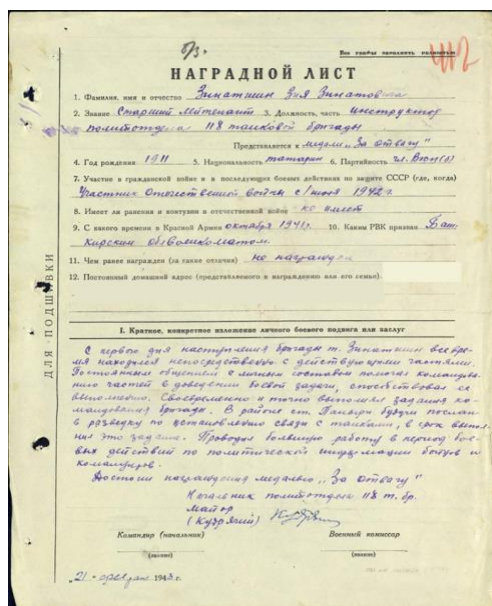 б/з.
Все графы заполнять полностью
412
НАГРАДНОЙ ЛИСТ
1. Фамилия, имя и отчество Зинатшин Зия Зинатович
2. Звание Старший Лейтенант 3. Должность, часть инструктор
политотдела 118 танковой бригады
Представляется к медали „За отвагу"
4. Год рождения 1911 5. Национальность татарин 6. Партийность чл. ВКП(б)
7. Участие в гражданской войне и в последующих боевых действиях по защите СССР (где, когда)
Участник Отечественной войны с июня 1942 г
8. Имеет ли ранения и контузии в отечественной войне не имеет
9. С какого времени в Красной Армии октября 1941 г. 10. Каким РВК призван Баш-
кирским облвоенкоматом.
11. Чем ранее награжден (за какие отличия) не награжден
12. Постоянный домашний адрес (представляемого к награждению или его семьи)
ДЛЯ ПОДШИВКИ
I. Краткое, конкретное изложение личного боевого подвига или заслуг
С первого дня наступления бригады т. Зинатшин все вре-
мя находился непосредственно с действующими частями.
Постоянным общением с личным составом помогал командова-
нию частей в доведении боевой задачи, способствовал ее
выполнению. Своевременно и точно выполнял задания ко-
мандования бригады. В районе ст. будучи послан
в разведку по установлению связи с танками, в срок выпол-
нил это задание. Проводил большую работу в период бое-
вых действий по политической информации бойцов и
командиров.
Достоин награждения медалью „За отвагу"
Начальник политотдела 118 т. бр.
майор
(Кудрячий)
Командир (начальник) Военный комиссар
(подпись) (подпись)
„21" февраля 1943 г.